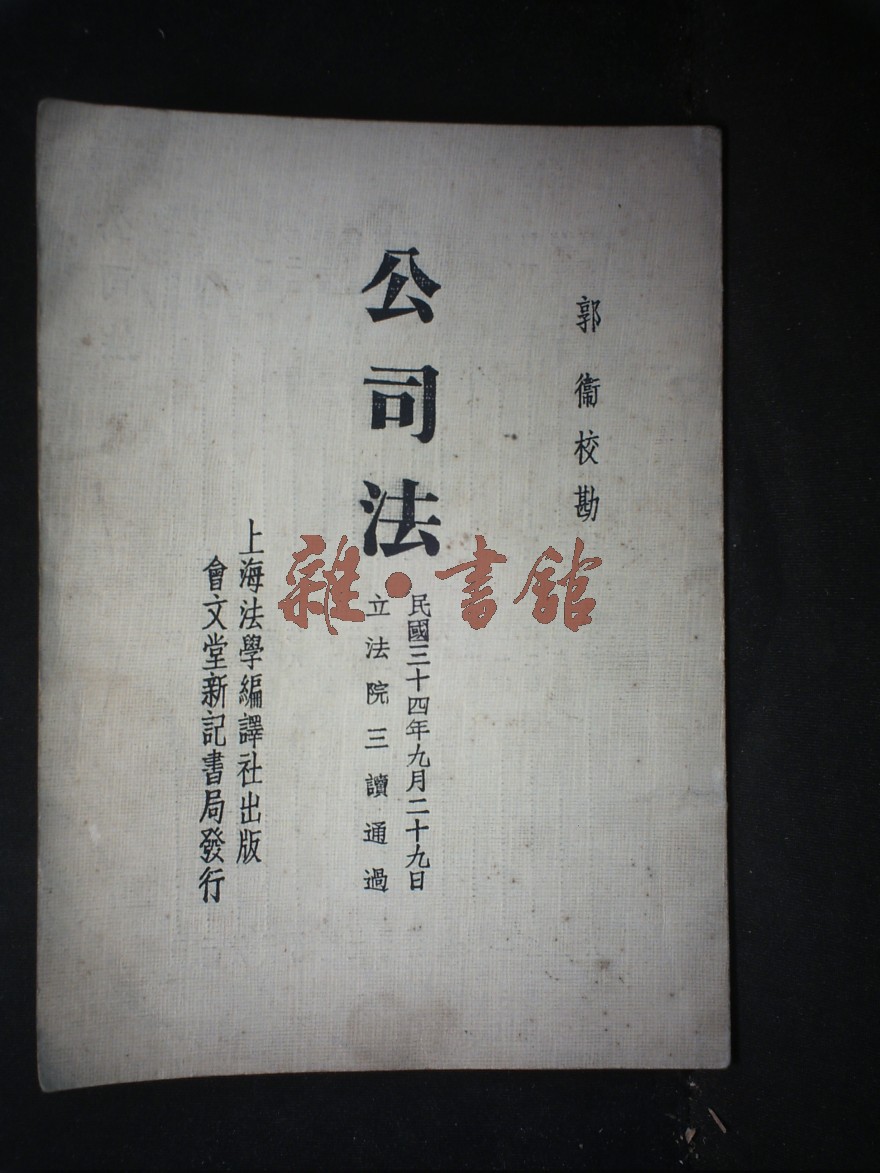 郭衞校勘
公司法
民國三十四年九月二十九日
立法院三讀通過
上海法學編譯社出版
會文堂新記書局發行
雜·書館